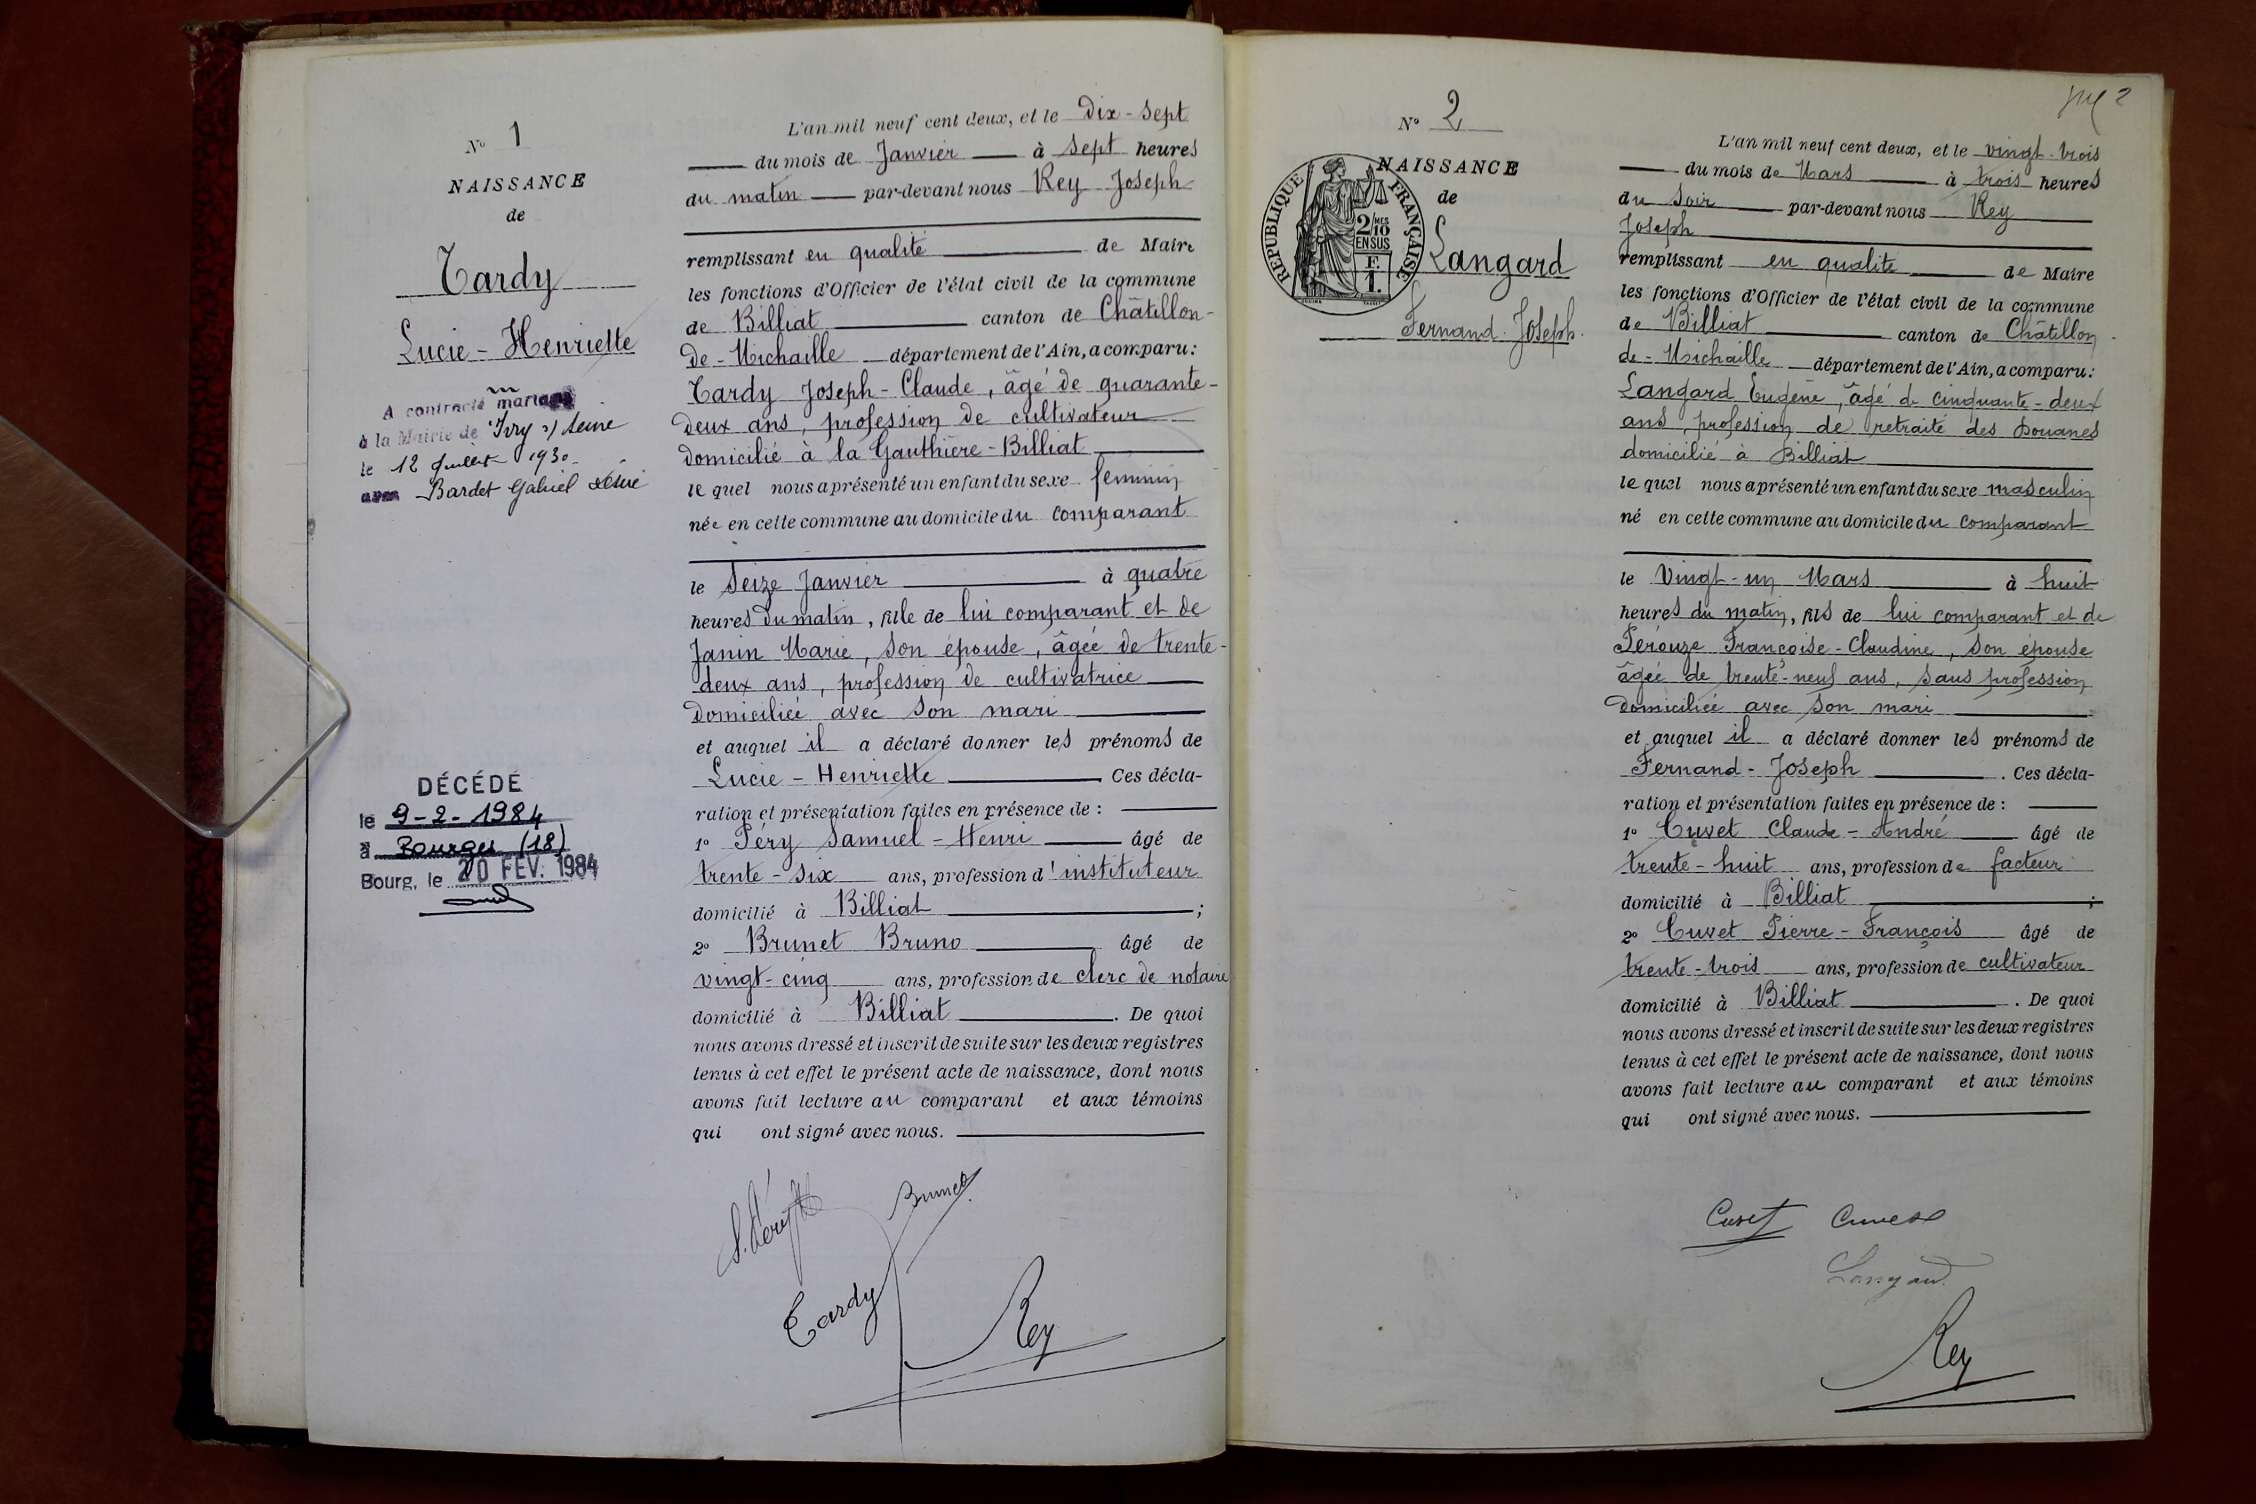 N° 1
NAISSANCE
de
Tardy
Lucie - Henriette
A contracté mariage
à la Mairie de Ivry s/ Seine
le 12 Juillet 1930
avec Bardet Gabriel Désiré
DÉCÉDÉ
le 9-2-1984
à Bourges (18)
Bourg, le 20 FEV. 1984
L'an mil neuf cent deux, et le Dix-Sept
du mois de Janvier à Sept heures
du matin par-devant nous Rey Joseph
remplissant en qualité de Maire
les fonctions d'Officier de l'état civil de la commune
de Billiat canton de Châtillon-
de-Michaille département de l'Ain, a comparu :
Tardy Joseph-Claude, âgé de quarante-
deux ans, profession de cultivateur
domicilié à la Gauthière-Billiat
le quel nous a présenté un enfant du sexe féminin
née en cette commune au domicile du comparant
le Seize Janvier à quatre
heures du matin, fille de lui comparant et de
Janin Marie, son épouse, âgée de trente-
deux ans, profession de cultivatrice
domiciliée avec son mari
et auquel il a déclaré donner les prénoms de
Lucie - Henriette Ces décla-
ration et présentation faites en présence de :
1° Péry Samuel-Henri âgé de
trente-six ans, profession d'instituteur
domicilié à Billiat ;
2° Brunet Bruno âgé de
vingt-cinq ans, profession de clerc de notaire
domicilié à Billiat . De quoi
nous avons dressé et inscrit de suite sur les deux registres
tenus à cet effet le présent acte de naissance, dont nous
avons fait lecture au comparant et aux témoins
qui ont signé avec nous.
S. Péry Brunet
Tardy Rey
2
N° 2
NAISSANCE
de
RÉPUBLIQUE FRANÇAISE
2/10 MES
EN SUS
F.
1.
Langard
Fernand-Joseph.
L'an mil neuf cent deux, et le vingt-trois
du mois de Mars à trois heures
du Soir par-devant nous Rey
Joseph
remplissant en qualité de Maire
les fonctions d'Officier de l'état civil de la commune
de Billiat canton de Châtillon-
de-Michaille département de l'Ain, a comparu :
Langard Eugène, âgé de cinquante-deux
ans, profession de retraité des Douanes
domicilié à Billiat
le quel nous a présenté un enfant du sexe masculin
né en cette commune au domicile du comparant
le Vingt-un Mars à huit
heures du matin, fils de lui comparant et de
Pérouze Françoise-Claudine, son épouse
âgée de trente-neuf ans, sans profession
domiciliée avec son mari
et auquel il a déclaré donner les prénoms de
Fernand-Joseph . Ces décla-
ration et présentation faites en présence de :
1° Cuvet Claude-André âgé de
trente-huit ans, profession de facteur
domicilié à Billiat ;
2° Cuvet Pierre-François âgé de
trente-trois ans, profession de cultivateur
domicilié à Billiat . De quoi
nous avons dressé et inscrit de suite sur les deux registres
tenus à cet effet le présent acte de naissance, dont nous
avons fait lecture au comparant et aux témoins
qui ont signé avec nous.
Cuvet Cuvet
Langard
Rey